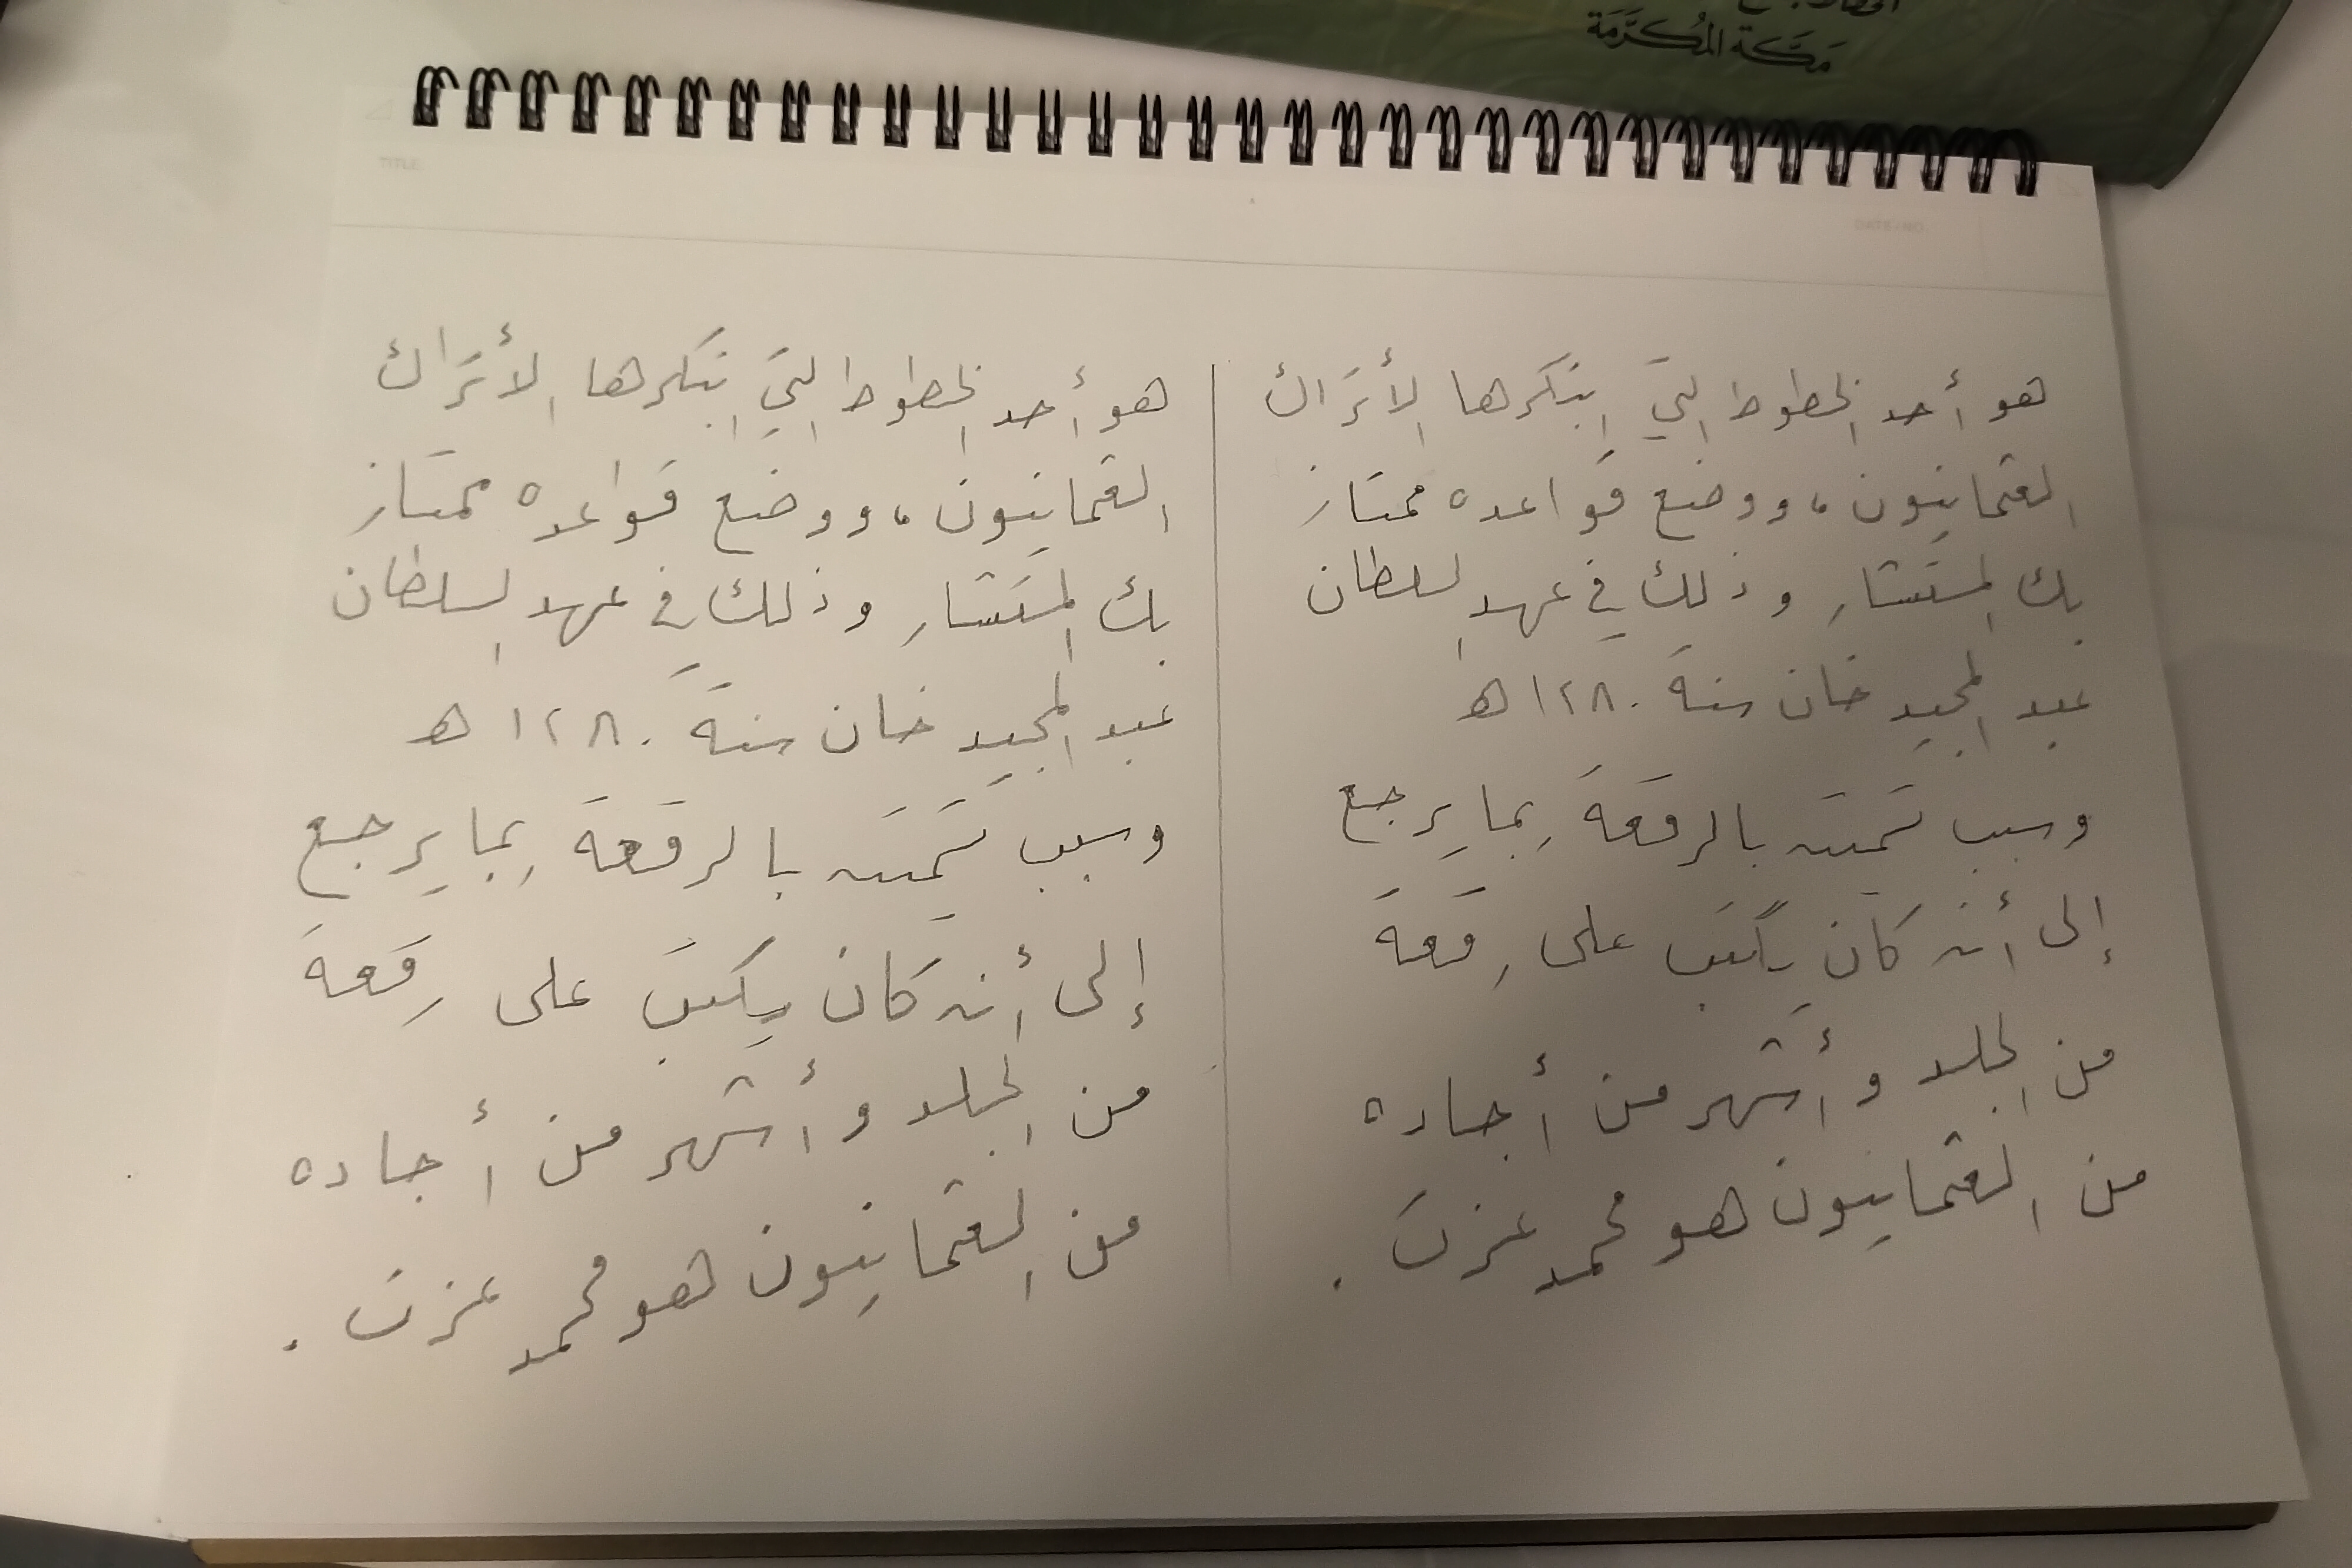 مَكَّة المُكَرَّمَة
TITLE
DATE/NO.
هو أحد الخطوط التي ابتكرها الأتراك
العثمانيون، ووضع قواعده ممتاز
بك المستشار وذلك في عهد السلطان
عبد المجيد خان سنة ١٢٨٠ هـ
وسبب تسميته بالرقعة ربما يرجع
إلى أنه كان يكتب على رقعة
من الجلد وأشهر من أجاده
من العثمانيون هو محمد عزت .
هو أحد الخطوط التي ابتكرها الأتراك
العثمانيون، ووضع قواعده ممتاز
بك المستشار وذلك في عهد السلطان
عبد المجيد خان سنة ١٢٨٠ هـ
وسبب تسميته بالرقعة ربما يرجع
إلى أنه كان يكتب على رقعة
من الجلد وأشهر من أجاده
من العثمانيون هو محمد عزت .